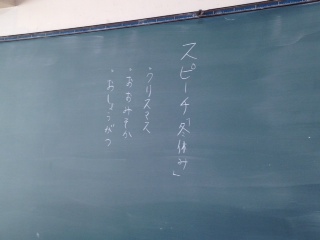 スピーチ「冬休み」
・クリスマス
・おおみそか
・おしょうがつ